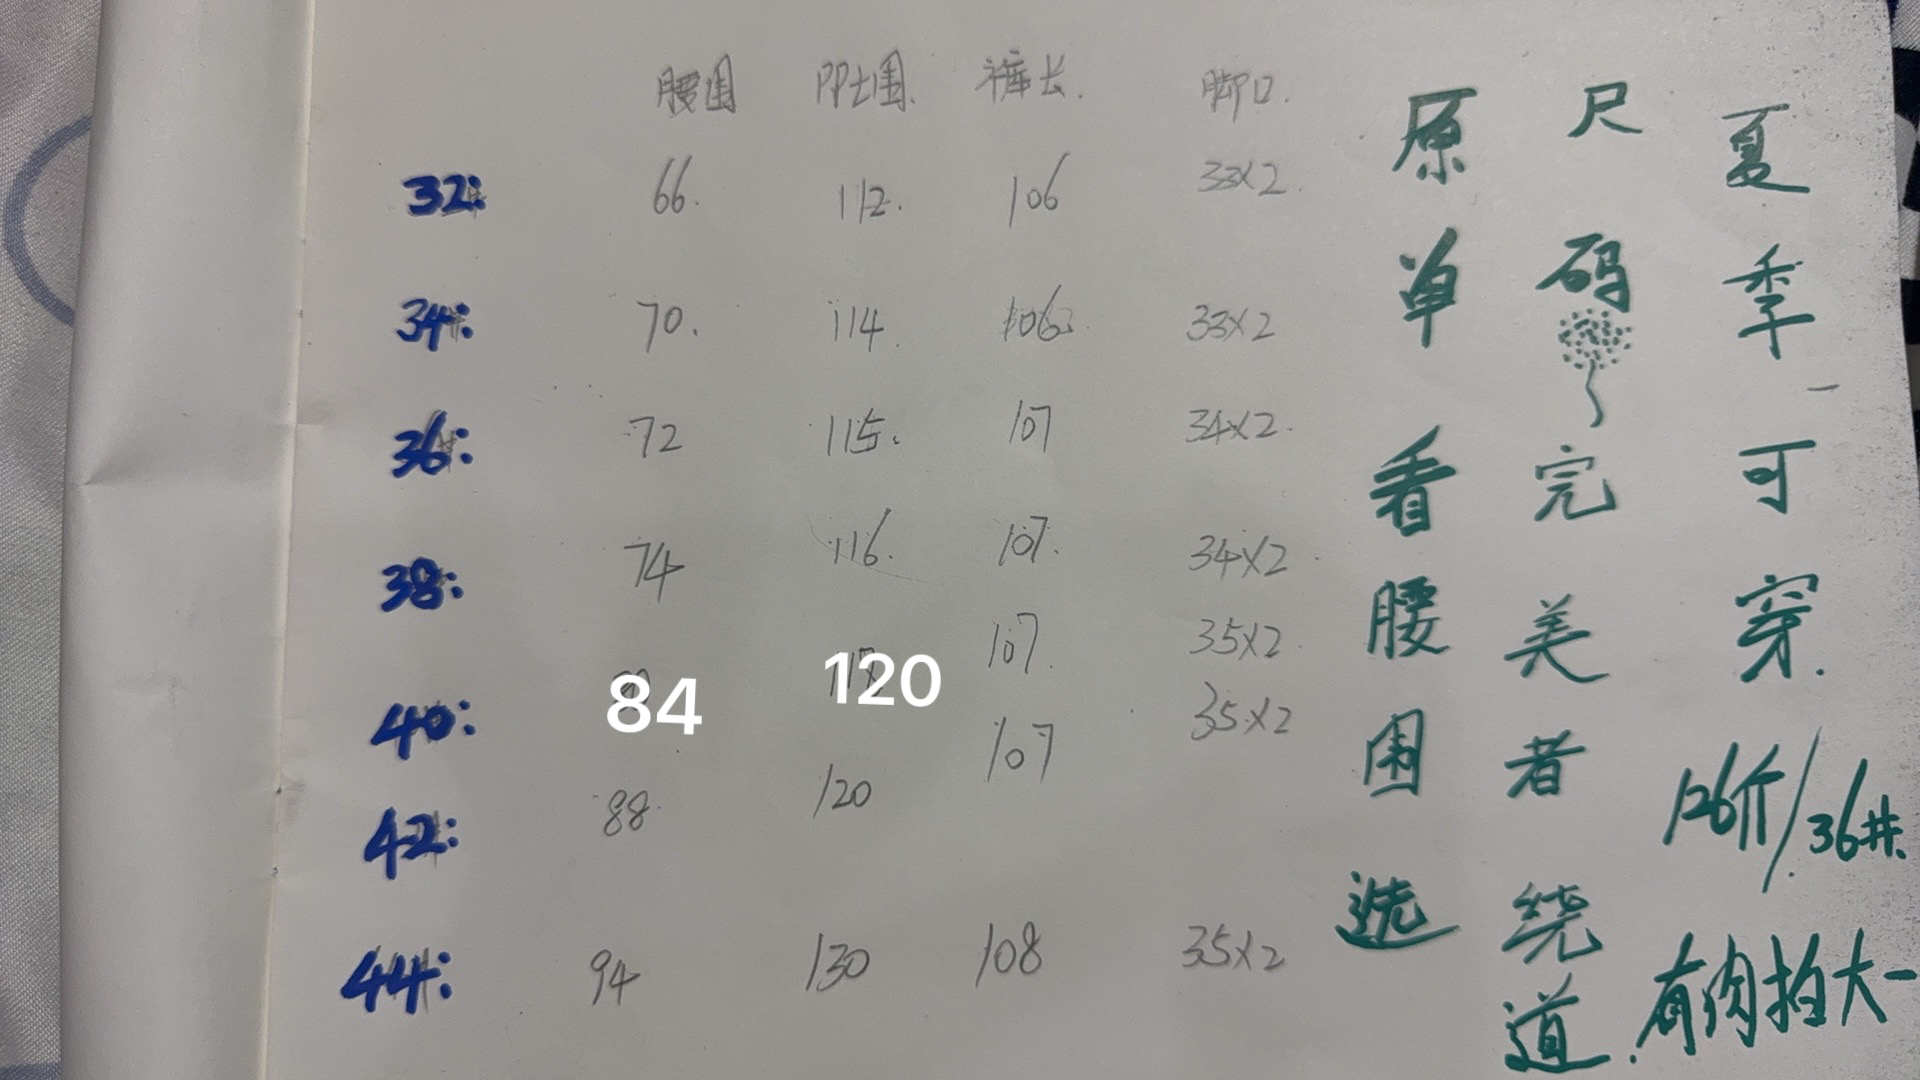 腰围 PP土围. 裤长. 脚口.
32: 66. 112. 106 33X2.
34: 70. 114. 106 33X2
36: 72 115. 107 34X2.
38: 74 116. 107. 34X2
40: 84 120 107. 35X2
42: 88. 120 107 35X2
44: 94 130 108 35X2
原单看腰围选
尺码
完美者绕道.
夏季可穿.
126斤/36#.
有肉拍大一